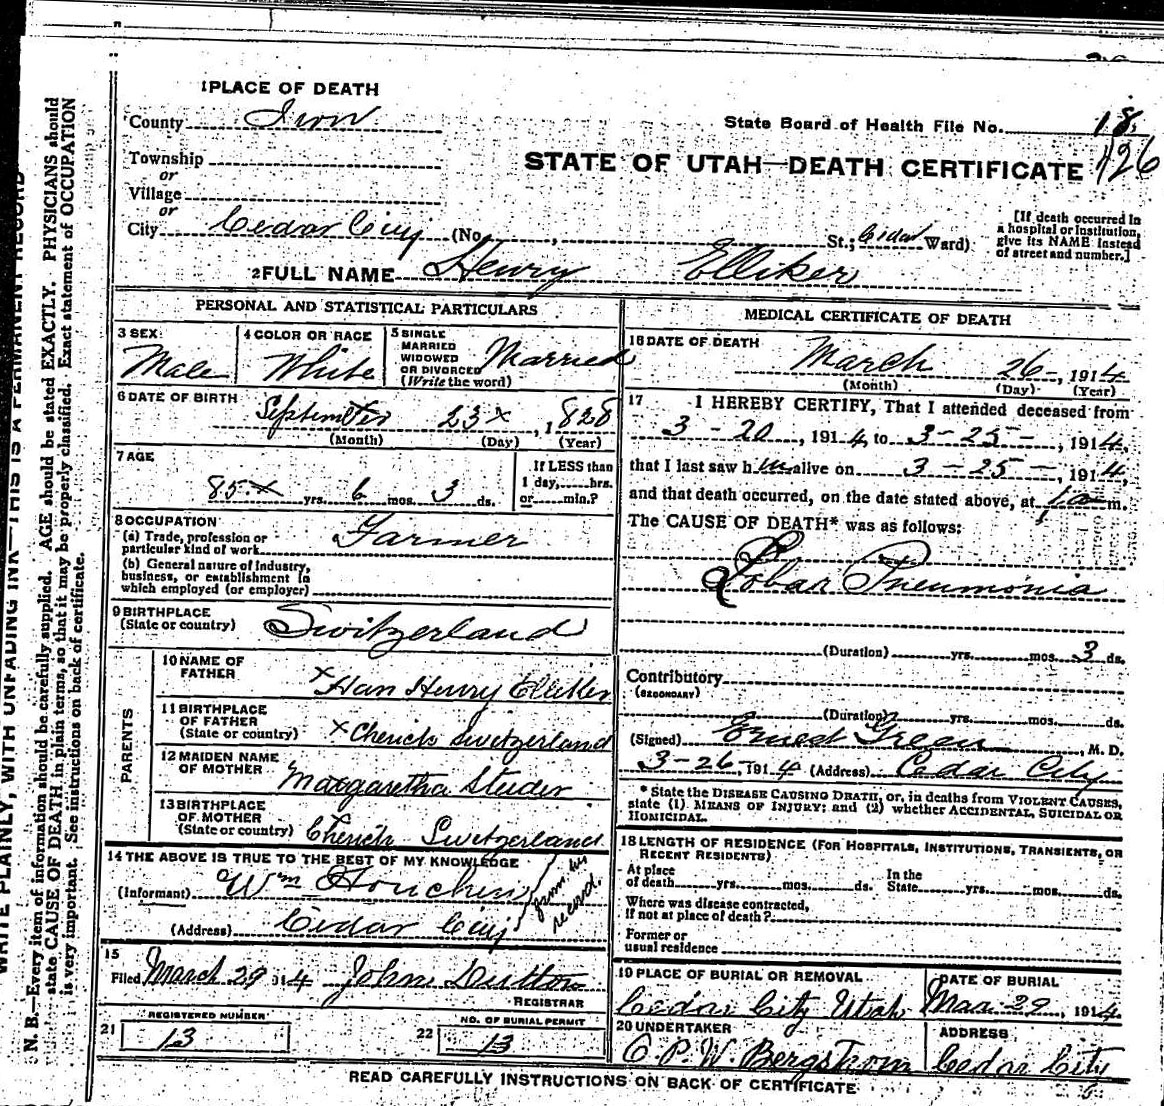 1 PLACE OF DEATH
County Iron
State Board of Health File No. 18
Township
STATE OF UTAH—DEATH CERTIFICATE 126
or
Village
or
City Cedar City (No. , St.; Cedar Ward)
[If death occurred in a hospital or institution, give its NAME instead of street and number.]
2 FULL NAME Henry Elliker
PERSONAL AND STATISTICAL PARTICULARS
3 SEX Male
4 COLOR OR RACE White
5 SINGLE MARRIED WIDOWED OR DIVORCED (Write the word) Married
6 DATE OF BIRTH
September 23 x, 1828
(Month) (Day) (Year)
7 AGE
85 x yrs. 6 mos. 3 ds.
If LESS than
1 day, hrs.
or min.?
8 OCCUPATION
(a) Trade, profession or
particular kind of work Farmer
(b) General nature of industry,
business, or establishment in
which employed (or employer)
9 BIRTHPLACE
(State or country) Switzerland
PARENTS
10 NAME OF
FATHER x Han Henry Elliker
11 BIRTHPLACE
OF FATHER
(State or country) x Cherich Switzerland
12 MAIDEN NAME
OF MOTHER Margaretha Studer
13 BIRTHPLACE
OF MOTHER
(State or country) Cherich Switzerland
14 THE ABOVE IS TRUE TO THE BEST OF MY KNOWLEDGE
(Informant) Wm Houchen
(Address) Cedar City
record.
15
Filed March 29 1914 John Dutton
REGISTRAR
21 REGISTERED NUMBER
13
22 NO. OF BURIAL PERMIT
13
MEDICAL CERTIFICATE OF DEATH
16 DATE OF DEATH
March 26, 1914
(Month) (Day) (Year)
17 I HEREBY CERTIFY, That I attended deceased from
3 - 20, 1914, to 3 - 25 -, 1914,
that I last saw him alive on 3 - 25 -, 1914,
and that death occurred, on the date stated above, at 1 a m.
The CAUSE OF DEATH* was as follows:
Lobar Pneumonia
(Duration) yrs. mos. 3 ds.
Contributory
(SECONDARY)
(Duration) yrs. mos. ds.
(Signed) Ernest Green, M. D.
3-26, 1914 (Address) Cedar City
* State the DISEASE CAUSING DEATH, or, in deaths from VIOLENT CAUSES,
state (1) MEANS OF INJURY; and (2) whether ACCIDENTAL, SUICIDAL OR
HOMICIDAL.
18 LENGTH OF RESIDENCE (FOR HOSPITALS, INSTITUTIONS, TRANSIENTS, OR
RECENT RESIDENTS)
At place
of death yrs. mos. ds.
In the
State yrs. mos. ds.
Where was disease contracted,
if not at place of death?
Former or
usual residence
19 PLACE OF BURIAL OR REMOVAL
Cedar City Utah
DATE OF BURIAL
Mar. 29, 1914.
20 UNDERTAKER
C. P. W. Bergstrom
ADDRESS
Cedar City
READ CAREFULLY INSTRUCTIONS ON BACK OF CERTIFICATE
WRITE PLAINLY, WITH UNFADING INK—THIS IS A PERMANENT RECORD
N. B.—Every item of information should be carefully supplied. AGE should be stated EXACTLY. PHYSICIANS should
state CAUSE OF DEATH in plain terms, so that it may be properly classified. Exact statement of OCCUPATION
is very important. See instructions on back of certificate.